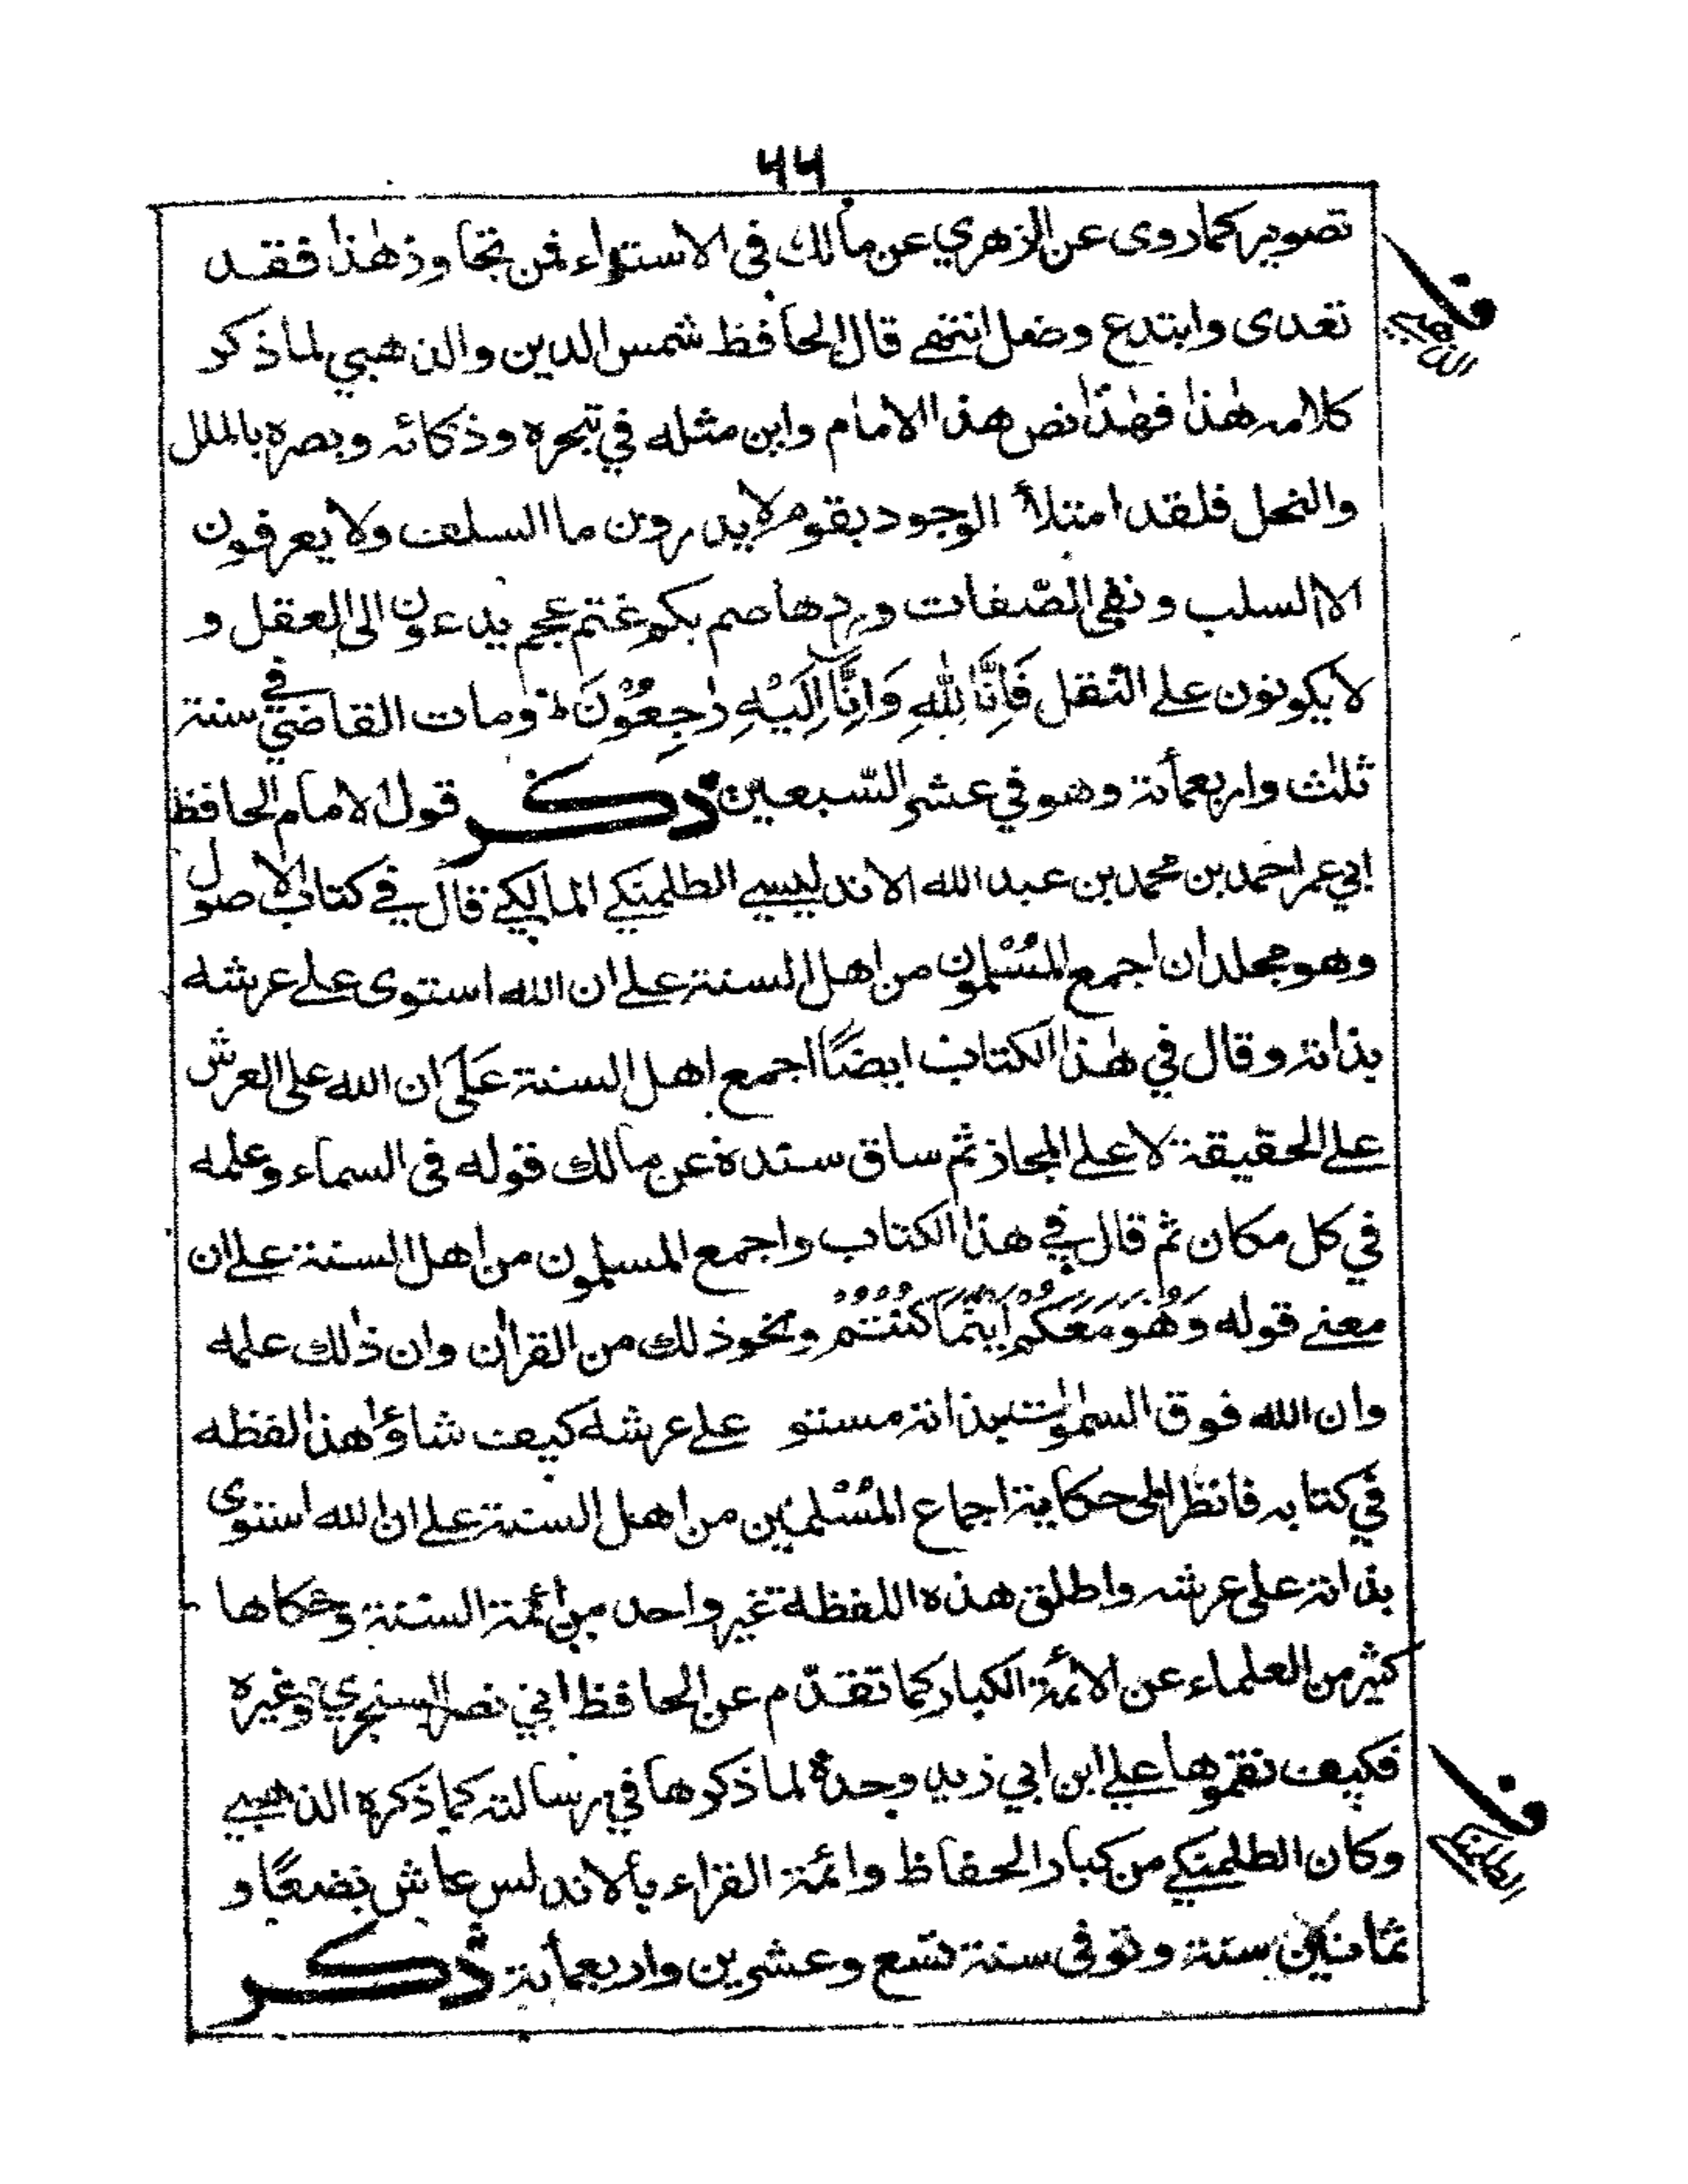 ٦٦
تصوير كما روى عن الزهري عن مالك فى الاستواء فمن تجاوز هٰذا فقد
تعدى وابتدع وضل انتهى قال الحافظ شمس الدين والذهبي لما ذكر
كلامه هٰذا فهٰذا نص هذا الامام واين مثله في تبحره وذكائه وبصره بالملل
والنحل فلقد امتلأ الوجود بقوم لا يدرون ما السلف ولا يعرفون
الا السلب ونفى الصّفات وردها صم بكم غتم عجم يدعون الى العقل و
لا يكونون على النقل فَاِنَّا لِلّٰهِ وَاِنَّا اِلَيْهِ رٰجِعُوْنَ ط ومات القاضي في سنة
ثلث واربعمأئة وهو في عشر السّبعين ذكر قول الامام الحافظ
ابي عمر احمد بن محمد بن عبد الله الاندليسي الطلمنكي المالكي قال في كتاب الاصول
وهو مجلدان اجمع المُسْلمون من اهل السنة على ان الله استوى على عرشه
بذاته وقال في هٰذا الكتاب ايضًا اجمع اهل السنة عَلَى ان الله على العرش
على الحقيقة لا على المجاز ثم ساق سنده عن مالك قوله فى السماء وعلمه
في كل مكان ثم قال في هذا الكتاب واجمع المسلمون من اهل السنة على ان
معنى قوله وَهُوَ مَعَكُمْ اَيْنَمَا كُنْتُمْ ونحو ذلك من القرآن وان ذٰلك علمه
وان الله فوق السمٰوٰت بذاته مستو على عرشه كيف شاؤا هذا لفظه
في كتابه فانظر الى حكاية اجماع المُسْلمين من اهل السنة على ان الله استوى
بذاته على عرشه واطلق هذه اللفظة غير واحد من ائمة السنة وحكاها
كثير من العلماء عن الائمة الكبار كما تقدّم عن الحافظ ابي نصر السنجري وغيره
فكيف نقموها على ابن ابي زيد وحدة لما ذكرها في رسالته كما ذكره الذهبي
وكان الطلمنكي من كبار الحفاظ وائمة القراء بالاندلس عاش بضعًا و
ثمانين سنة وتوفى سنة تسع وعشرين واربعمأئة ذكر